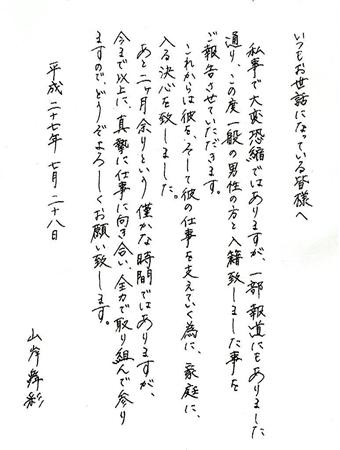 いつもお世話になっている皆様へ
私事で大変恐縮ではありますが、一部報道にもありました
通り、この度一般の男性の方と入籍致しました事を
ご報告させていただきます。
これからは彼を、そして彼の仕事を支えていく為に、家庭に
入る決心を致しました。
あと二ヶ月余りという僅かな時間ではありますが、
今まで以上に、真摯に仕事に向き合い、全力で取り組んで参り
ますので、どうぞよろしくお願い致します。
平成二十七年 七月二十八日
山岸舞彩